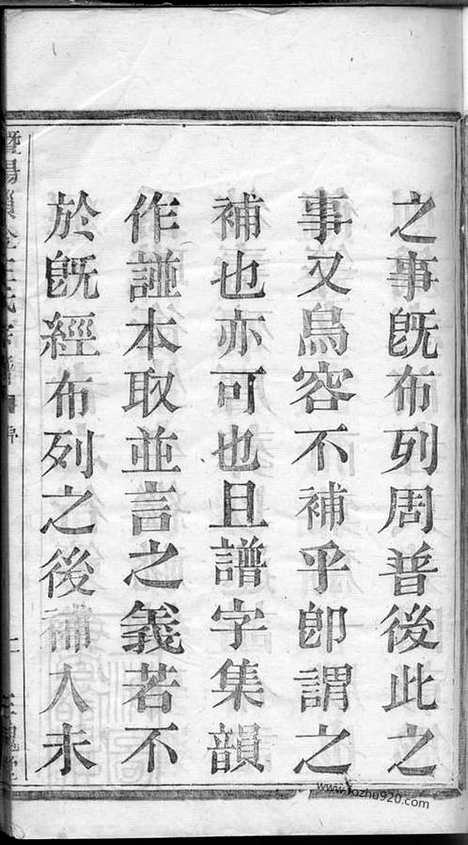 之事既布列周普後此之
事又烏容不補乎即謂之
補也亦可也且譜字集韻
作䜟本取並言之義若不
於旣經布列之後補入未
www.fozhu920.com